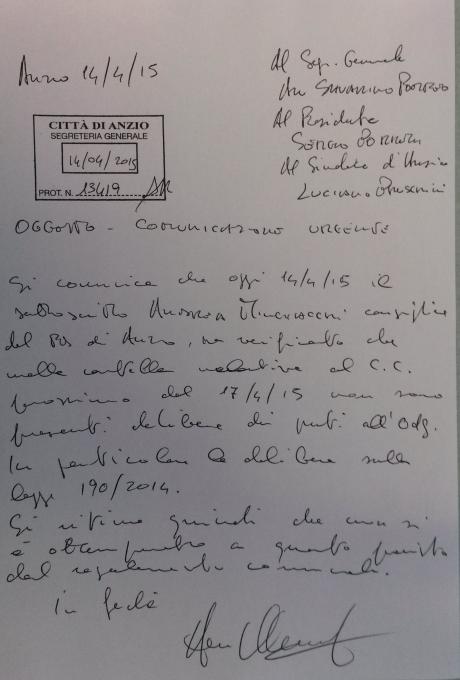 Anzio 14/4/15
Al Seg. Generale
Avv SAVARINO POMPEO
Al Presidente
SERGIO BORRELLI
Al Sindaco d'Anzio
LUCIANO BRUSCHINI
CITTÀ DI ANZIO
SEGRETERIA GENERALE
14/04/2015
PROT. N. 13419
OGGETTO - COMUNICAZIONE URGENTE
Si comunica che oggi 14/4/15 il
sottoscritto ANDREA MINGIACCHI consigliere
del PD di Anzio, ha verificato che
nella cartella relativa al C.C.
prossimo del 17/4/15 non sono
presenti delibere dei punti all'Odg.
In particolare le delibere sulla
legge 190/2014.
Si ritiene quindi che non si
è ottemperato a quanto previsto
dal regolamento comunale.
In fede